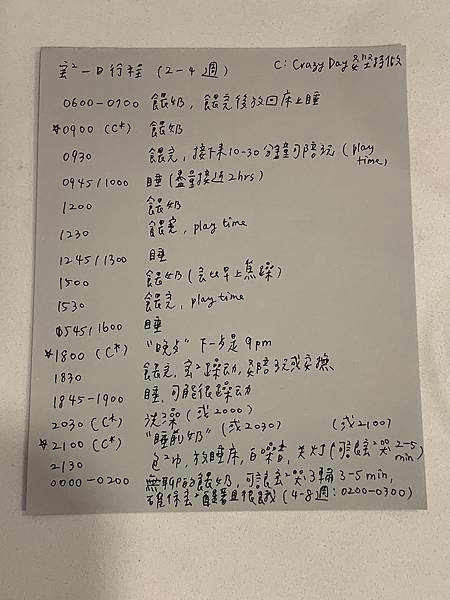 宝² 一日行程 (2-4週)
C: Crazy Day 要堅持做
0600-0700 餵奶, 餵完後放回床上睡
*0900 (C*) 餵奶
0930 餵完, 接下來10-30分鐘可陪玩 (play time)
0945/1000 睡 (盡量接近2hrs)
1200 餵奶
1230 餵完, play time
1245/1300 睡
1500 餵奶 (会比早上焦躁)
1530 餵完, play time
1545/1600 睡
*1800 (C*) "晚" 下一步是9pm
1830 餵完, 宝²躁动, 要陪玩或安撫
1845-1900 睡, 可能很躁动
2030 (C*) 洗澡 (或2000)
*2100 (C*) "睡前奶" (或2030) (或2100)
2130 包²巾, 放睡床, 白噪音, 关灯 (可讓宝²哭2-5 min)
0000-0200 餵奶, 可讓宝²哭3輪 3-5 min,
確保宝²醒著且很餓 (4-8週: 0200-0300)